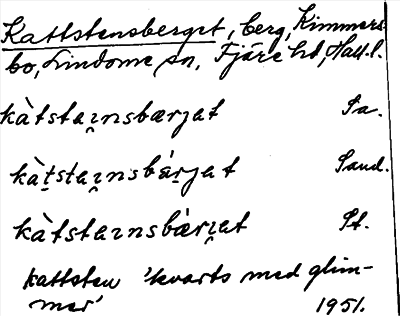 Kattstensberget, berg, Kimmers-
bo, Lindome sn, Fjäre hd, Hall. l.
kàtstaɪnsbærjat Ta.
kàtstaɪnsbǽrjat Sand.
kàtstaɪnsbǽrjat St.
kattsten 'kvarts med glim-
mer' 1951.